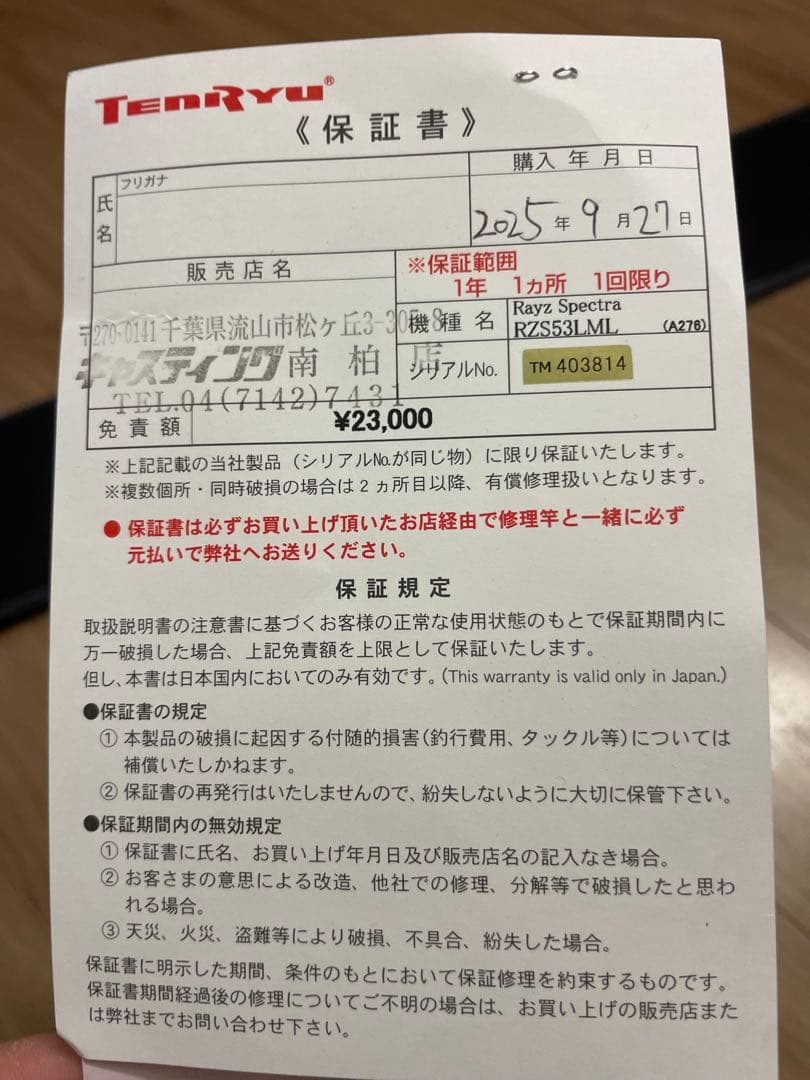 TENRYU®
《保証書》
フリガナ
氏名
購入年月日
2025年9月27日
販売店名
〒270-0141千葉県流山市松ヶ丘3-305-8
キャスティング南柏店
TEL.04(7142)7431
※保証範囲
1年 1ヵ所 1回限り
機種名
Rayz Spectra
RZS53LML (A276)
シリアルNo.
TM 403814
免責額
¥23,000
※上記記載の当社製品（シリアルNo.が同じ物）に限り保証いたします。
※複数個所・同時破損の場合は2ヵ所目以降、有償修理扱いとなります。
●保証書は必ずお買い上げ頂いたお店経由で修理竿と一緒に必ず
元払いで弊社へお送りください。
保証規定
取扱説明書の注意書に基づくお客様の正常な使用状態のもとで保証期間内に
万一破損した場合、上記免責額を上限として保証いたします。
但し、本書は日本国内においてのみ有効です。(This warranty is valid only in Japan.)
●保証書の規定
① 本製品の破損に起因する付随的損害(釣行費用、タックル等)については
補償いたしかねます。
② 保証書の再発行はいたしませんので、紛失しないように大切に保管下さい。
●保証期間内の無効規定
① 保証書に氏名、お買い上げ年月日及び販売店名の記入なき場合。
② お客さまの意思による改造、他社での修理、分解等で破損したと思わ
れる場合。
③ 天災、火災、盗難等により破損、不具合、紛失した場合。
保証書に明示した期間、条件のもとにおいて保証修理を約束するものです。
保証書期間経過後の修理についてご不明の場合は、お買い上げの販売店また
は弊社までお問い合わせ下さい。